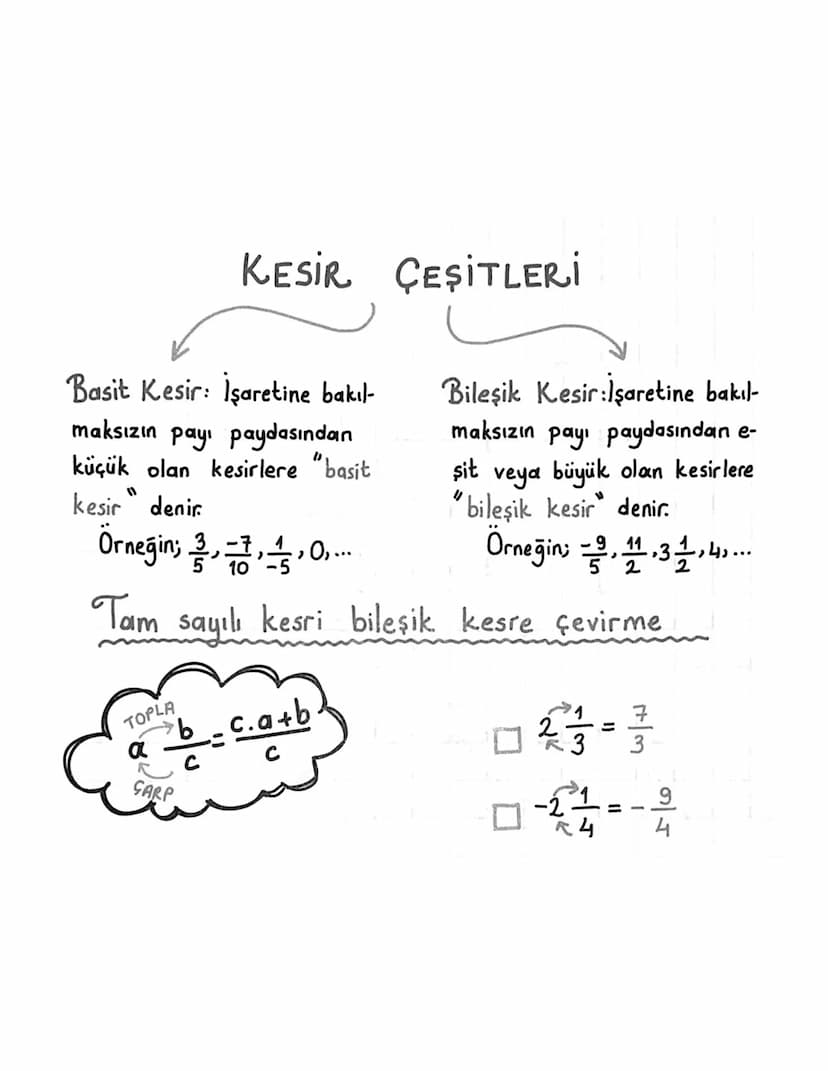 KESİR ÇEŞİTLERİ
Basit Kesir: İşaretine bakıl-
maksızın payı paydasından
küçük olan kesirlere "basit
kesir" denir.
Örneğin; 3/5, -7/10, 1/-5, 0, ...
Bileşik Kesir: İşaretine bakıl-
maksızın payı paydasından e-
şit veya büyük olan kesirlere
"bileşik kesir" denir.
Örneğin; -9/5, 11/2, 3 1/2, 4, ...
Tam sayılı kesri bileşik kesre çevirme
TOPLA
a b/c = c.a+b/c
ÇARP
2 1/3 = 7/3
-2 1/4 = - 9/4